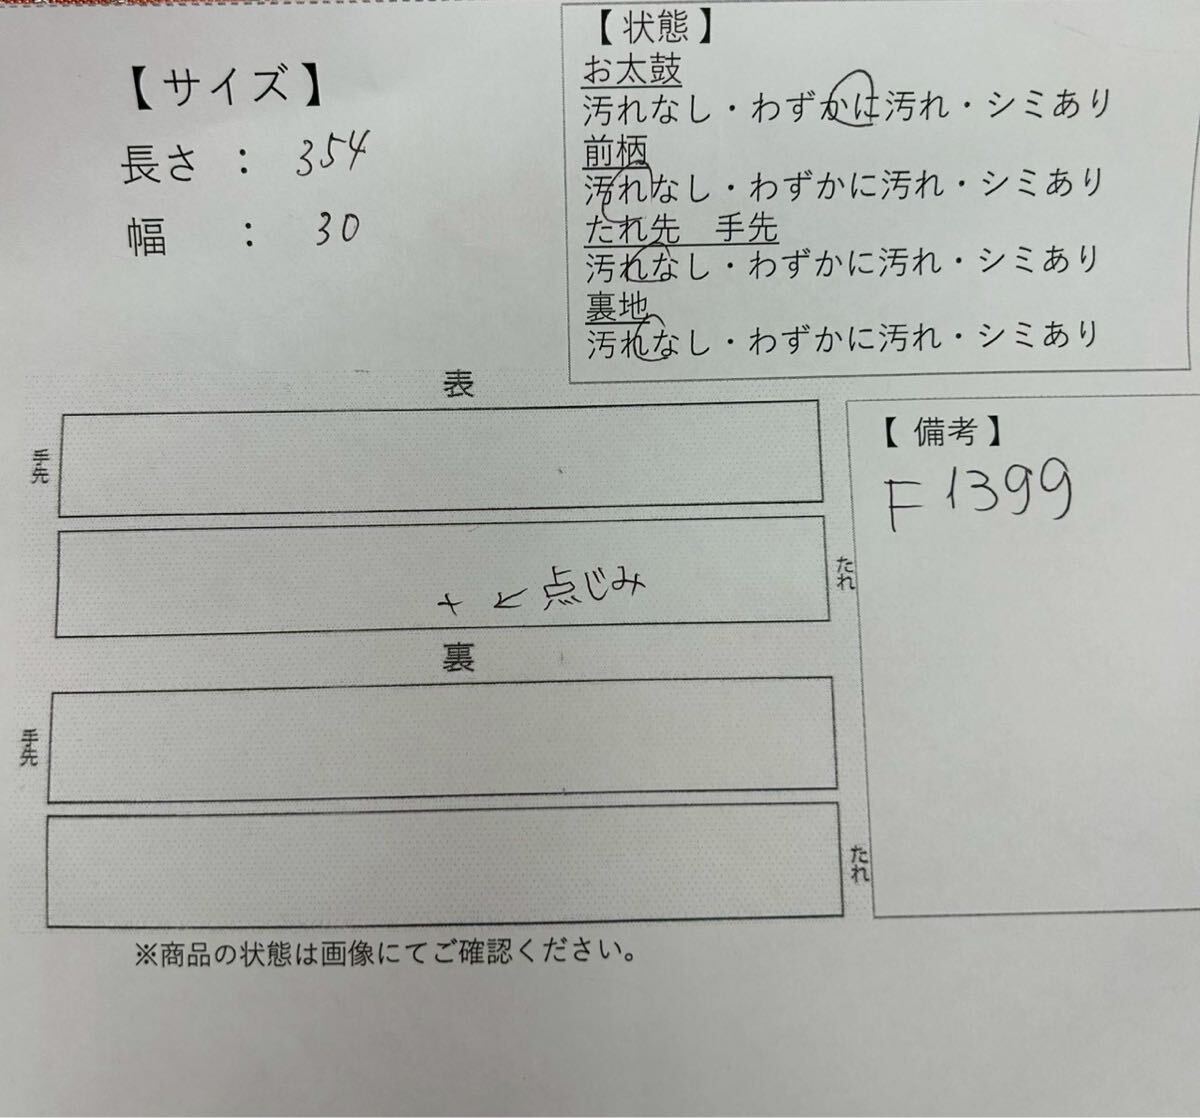 【サイズ】
長さ ： 354
幅 ： 30
【状態】
お太鼓
汚れなし・わずかに汚れ・シミあり
前柄
汚れなし・わずかに汚れ・シミあり
たれ先 手先
汚れなし・わずかに汚れ・シミあり
裏地
汚れなし・わずかに汚れ・シミあり
表
手先
+ ← 点じみ
たれ
裏
手先
たれ
【備考】
F1399
※商品の状態は画像にてご確認ください。